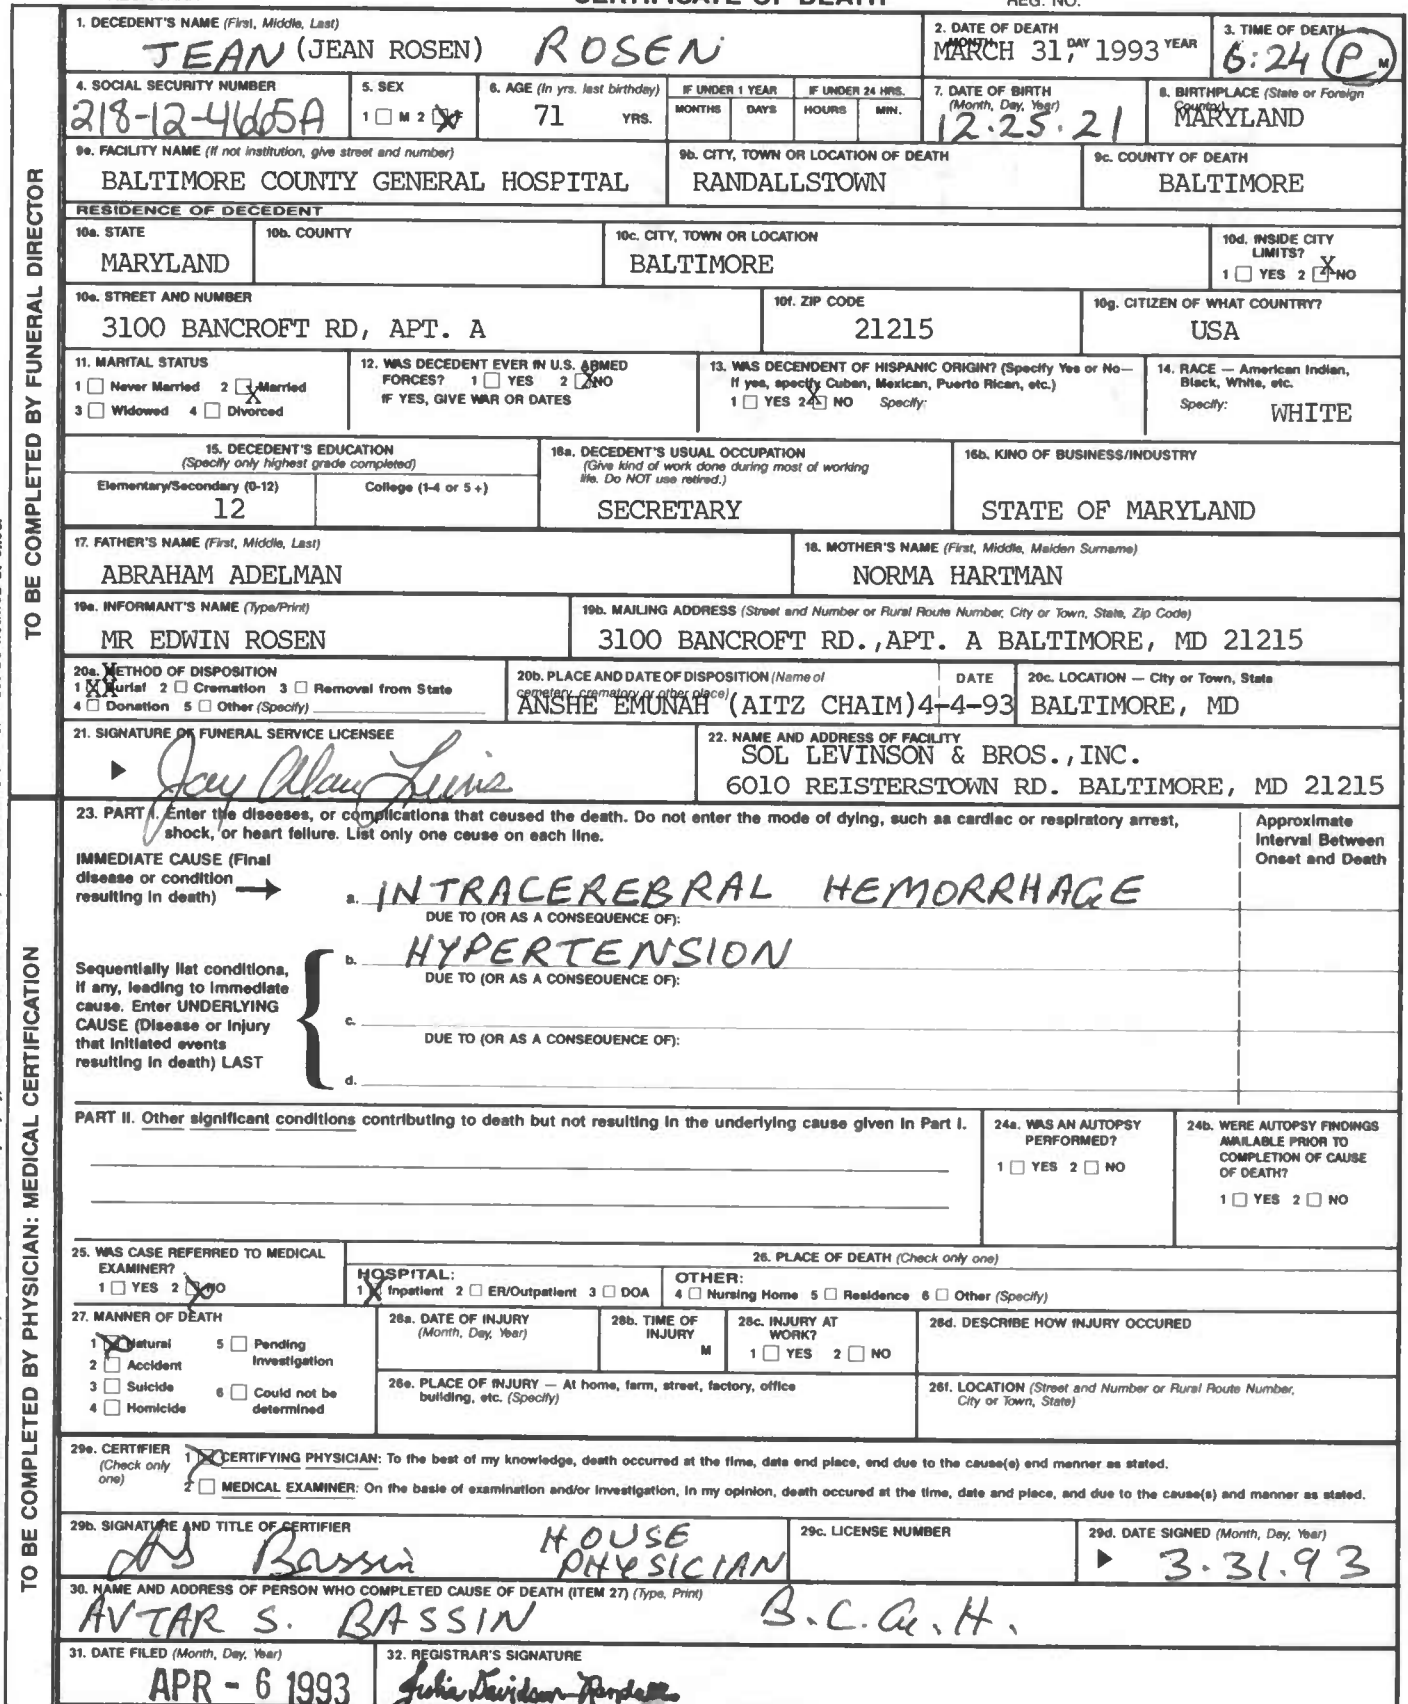 CERTIFICATE OF DEATH
REG. NO.
1. DECEDENT'S NAME (First, Middle, Last)
JEAN (JEAN ROSEN) ROSEN
2. DATE OF DEATH
MONTH DAY YEAR
MARCH 31, 1993
3. TIME OF DEATH
6:24 P M
4. SOCIAL SECURITY NUMBER
218-12-4665A
5. SEX
1 M 2 F
6. AGE (In yrs. last birthday)
71 YRS.
IF UNDER 1 YEAR
MONTHS DAYS
IF UNDER 24 HRS.
HOURS MIN.
7. DATE OF BIRTH
(Month, Day, Year)
12.25.21
8. BIRTHPLACE (State or Foreign
Country)
MARYLAND
9a. FACILITY NAME (If not institution, give street and number)
BALTIMORE COUNTY GENERAL HOSPITAL
9b. CITY, TOWN OR LOCATION OF DEATH
RANDALLSTOWN
9c. COUNTY OF DEATH
BALTIMORE
RESIDENCE OF DECEDENT
10a. STATE
MARYLAND
10b. COUNTY
10c. CITY, TOWN OR LOCATION
BALTIMORE
10d. INSIDE CITY
LIMITS?
1 YES 2 X NO
10e. STREET AND NUMBER
3100 BANCROFT RD, APT. A
10f. ZIP CODE
21215
10g. CITIZEN OF WHAT COUNTRY?
USA
11. MARITAL STATUS
1 Never Married 2 X Married
3 Widowed 4 Divorced
12. WAS DECEDENT EVER IN U.S. ARMED
FORCES? 1 YES 2 X NO
IF YES, GIVE WAR OR DATES
13. WAS DECENDENT OF HISPANIC ORIGIN? (Specify Yes or No—
If yes, specify Cuban, Mexican, Puerto Rican, etc.)
1 YES 2 X NO Specify:
14. RACE — American Indian,
Black, White, etc.
Specify: WHITE
15. DECEDENT'S EDUCATION
(Specify only highest grade completed)
Elementary/Secondary (0-12)
12
College (1-4 or 5+)
16a. DECEDENT'S USUAL OCCUPATION
(Give kind of work done during most of working
life. Do NOT use retired.)
SECRETARY
16b. KIND OF BUSINESS/INDUSTRY
STATE OF MARYLAND
17. FATHER'S NAME (First, Middle, Last)
ABRAHAM ADELMAN
18. MOTHER'S NAME (First, Middle, Maiden Surname)
NORMA HARTMAN
19a. INFORMANT'S NAME (Type/Print)
MR EDWIN ROSEN
19b. MAILING ADDRESS (Street and Number or Rural Route Number, City or Town, State, Zip Code)
3100 BANCROFT RD.,APT. A BALTIMORE, MD 21215
20a. METHOD OF DISPOSITION
1 X Burial 2 Cremation 3 Removal from State
4 Donation 5 Other (Specify)
20b. PLACE AND DATE OF DISPOSITION (Name of
cemetery, crematory or other place)
DATE
ANSHE EMUNAH (AITZ CHAIM) 4-4-93
20c. LOCATION — City or Town, State
BALTIMORE, MD
21. SIGNATURE OF FUNERAL SERVICE LICENSEE
Jay Alan Lewis
22. NAME AND ADDRESS OF FACILITY
SOL LEVINSON & BROS.,INC.
6010 REISTERSTOWN RD. BALTIMORE, MD 21215
TO BE COMPLETED BY FUNERAL DIRECTOR
23. PART I. Enter the diseases, or complications that caused the death. Do not enter the mode of dying, such as cardiac or respiratory arrest,
shock, or heart failure. List only one cause on each line.
Approximate
Interval Between
Onset and Death
IMMEDIATE CAUSE (Final
disease or condition
resulting in death)
a. INTRACEREBRAL HEMORRHAGE
DUE TO (OR AS A CONSEQUENCE OF):
b. HYPERTENSION
DUE TO (OR AS A CONSEQUENCE OF):
Sequentially list conditions,
if any, leading to immediate
cause. Enter UNDERLYING
CAUSE (Disease or injury
that initiated events
resulting in death) LAST
c.
DUE TO (OR AS A CONSEQUENCE OF):
d.
PART II. Other significant conditions contributing to death but not resulting in the underlying cause given in Part I.
24a. WAS AN AUTOPSY
PERFORMED?
1 YES 2 NO
24b. WERE AUTOPSY FINDINGS
AVAILABLE PRIOR TO
COMPLETION OF CAUSE
OF DEATH?
1 YES 2 NO
25. WAS CASE REFERRED TO MEDICAL
EXAMINER?
1 YES 2 X NO
26. PLACE OF DEATH (Check only one)
HOSPITAL:
1 X Inpatient 2 ER/Outpatient 3 DOA
OTHER:
4 Nursing Home 5 Residence 6 Other (Specify)
27. MANNER OF DEATH
1 X Natural 5 Pending
2 Accident Investigation
3 Suicide 6 Could not be
4 Homicide determined
28a. DATE OF INJURY
(Month, Day, Year)
28b. TIME OF
INJURY
M
28c. INJURY AT
WORK?
1 YES 2 NO
28d. DESCRIBE HOW INJURY OCCURED
28e. PLACE OF INJURY — At home, farm, street, factory, office
building, etc. (Specify)
28f. LOCATION (Street and Number or Rural Route Number,
City or Town, State)
29a. CERTIFIER
(Check only
one)
1 X CERTIFYING PHYSICIAN: To the best of my knowledge, death occurred at the time, date and place, and due to the cause(s) and manner as stated.
2 MEDICAL EXAMINER: On the basis of examination and/or investigation, in my opinion, death occured at the time, date and place, and due to the cause(s) and manner as stated.
29b. SIGNATURE AND TITLE OF CERTIFIER
AS Bassin HOUSE
PHYSICIAN
29c. LICENSE NUMBER
29d. DATE SIGNED (Month, Day, Year)
3.31.93
30. NAME AND ADDRESS OF PERSON WHO COMPLETED CAUSE OF DEATH (ITEM 27) (Type, Print)
AVTAR S. BASSIN B.C.G.H.
31. DATE FILED (Month, Day, Year)
APR - 6 1993
32. REGISTRAR'S SIGNATURE
Julia Davidson-Randall
TO BE COMPLETED BY PHYSICIAN: MEDICAL CERTIFICATION